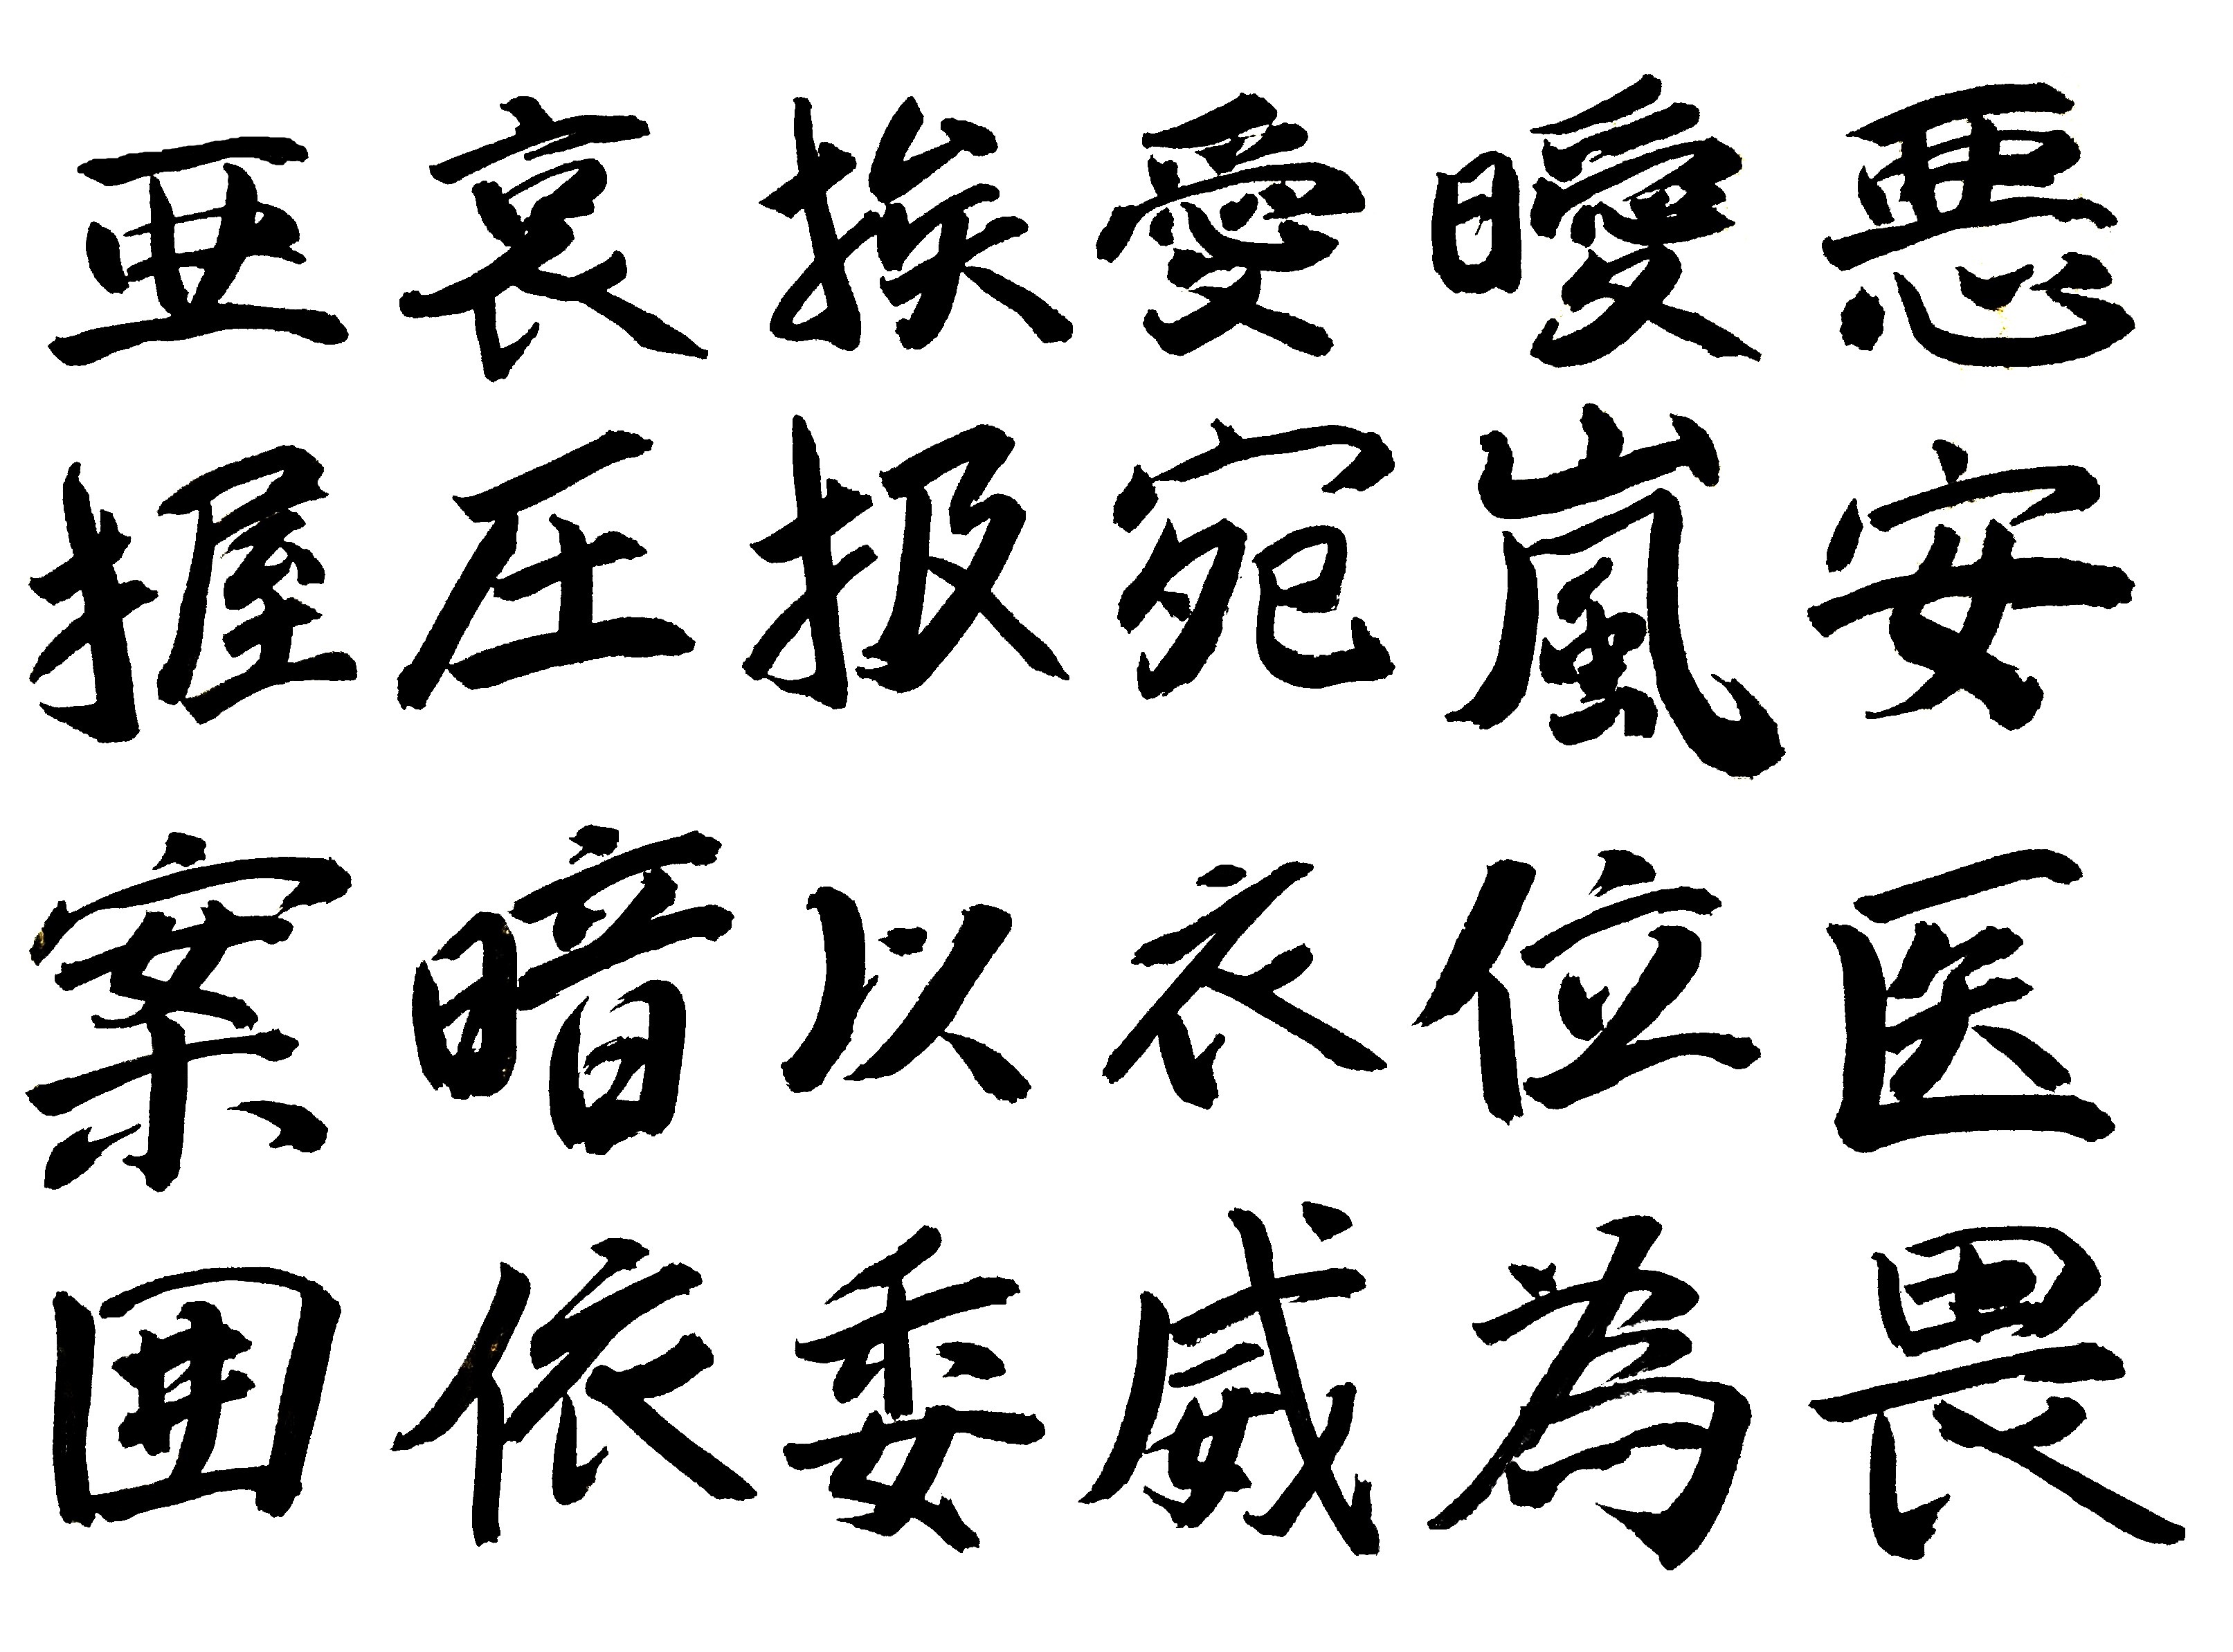 亜哀挨愛曖悪
握圧扱宛嵐安
案暗以衣位医
囲依委威為畏